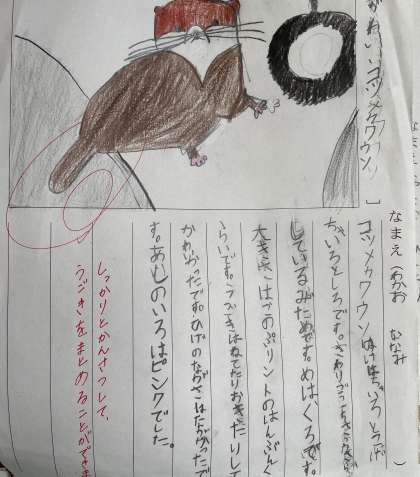 かわいいコツメカワウソ
なまえ（わかお ななみ）
コツメカワウソ いろとうげ
ちゃいろとしろです。さわり
しているみたいです。めは、くろです。
大きさは のプリントのはんぶんぐ
らいです。うごきはねてたりおきたりして
かわいかったです。ひげのながさはながかったで
す。あしのいろはピンクでした。
しっかりとかんさつして、
うごきをまとめることができま